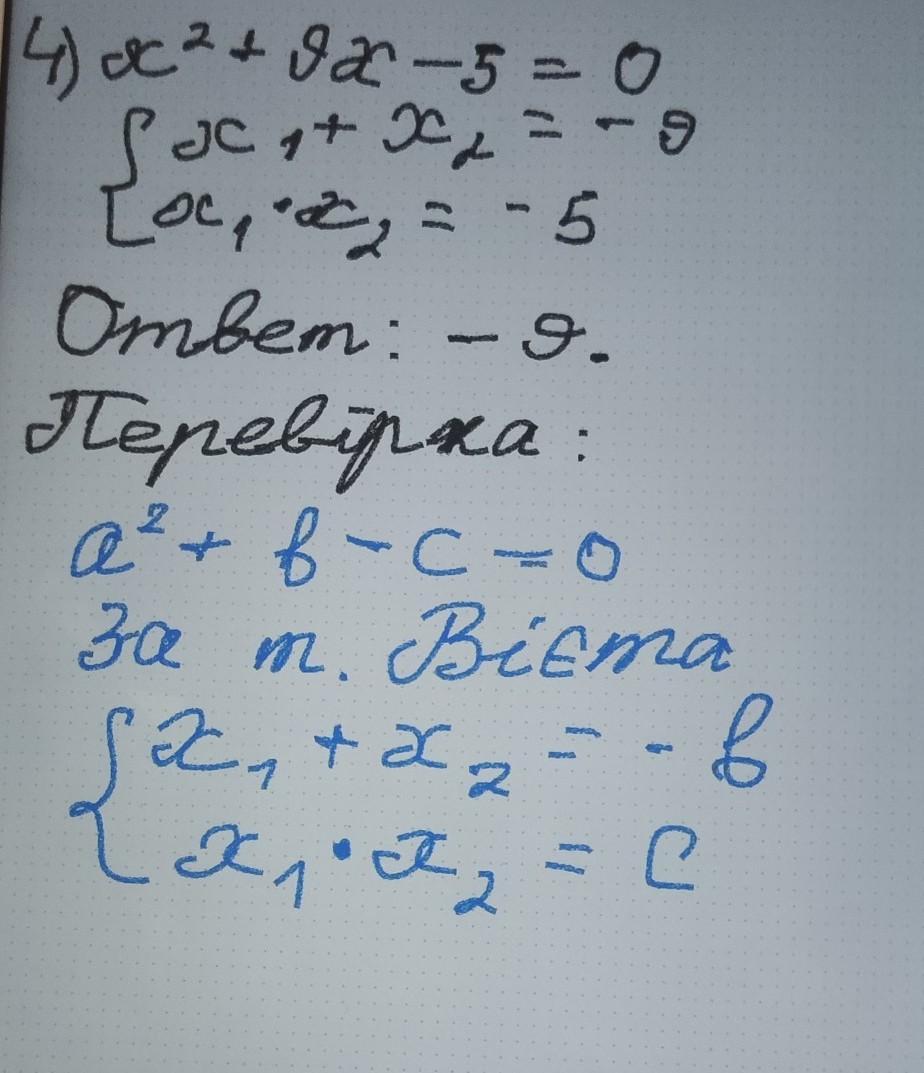 4) x² + 9x - 5 = 0
{ x₁ + x₂ = - 9
x₁ · x₂ = - 5
Ответ: - 9.
Перевірка:
a² + b - c = 0
За т. Вієта
{ x₁ + x₂ = - b
x₁ · x₂ = c